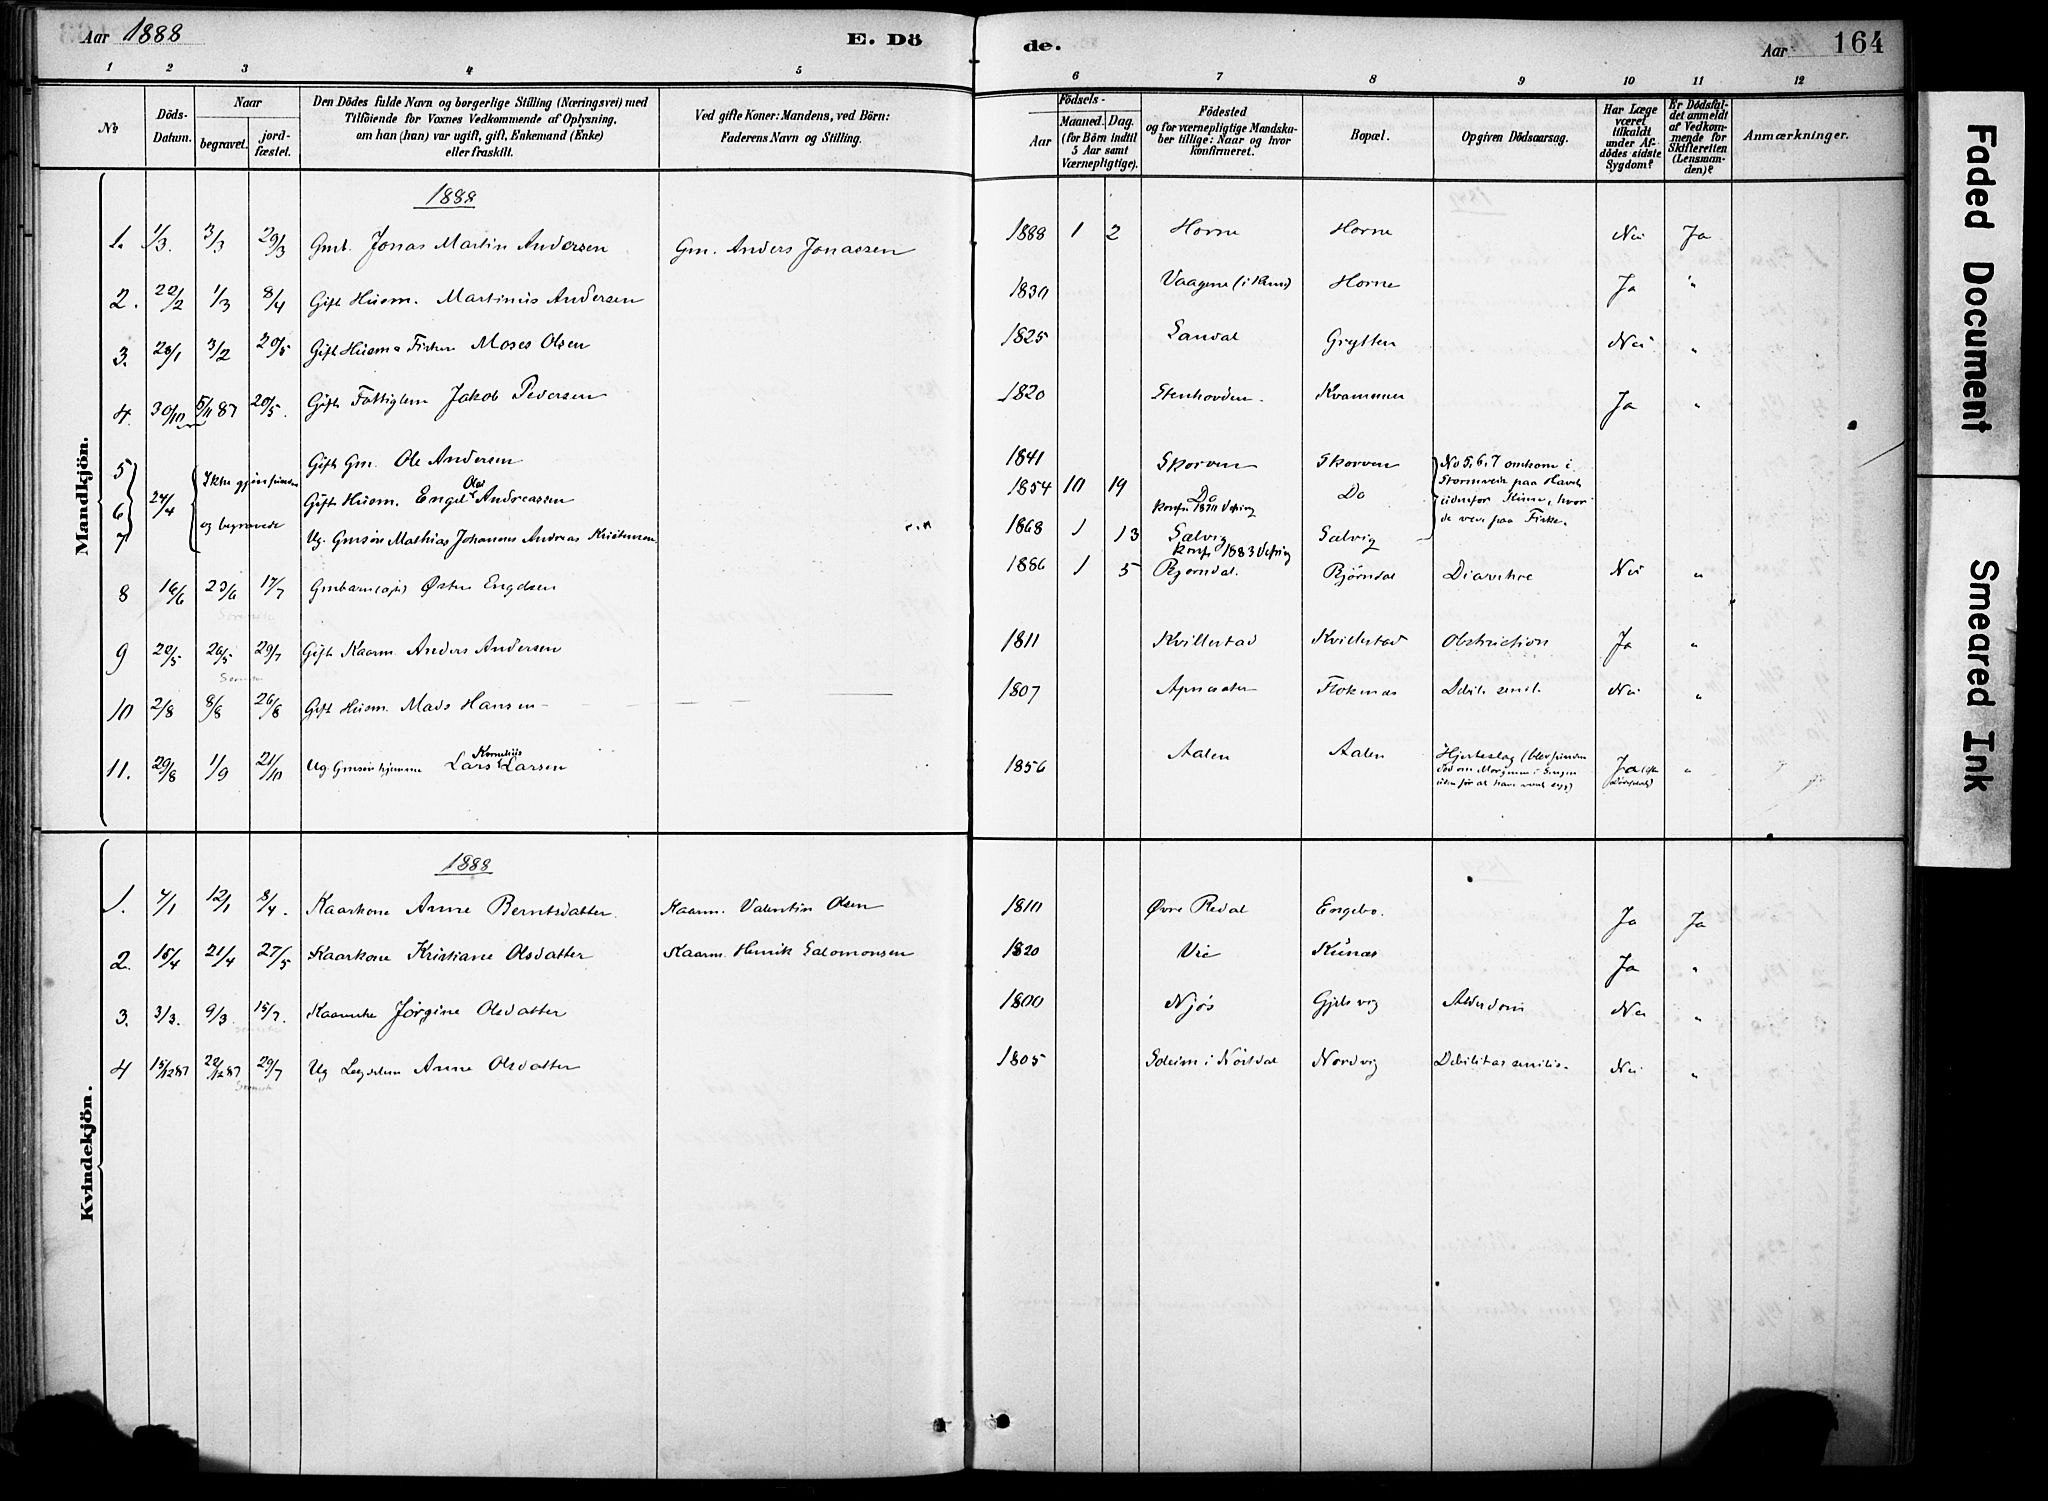 Aar 1888 E. Dö
de. Aar 164
1 2 3 4 5 6 7 8 9 10 11 12
No
Döds-Datum.
Naar
begravet.
jord-fæstet.
Den Dödes fulde Navn og borgerlige Stilling (Næringsvei) med
Tilföiende for Voxnes Vedkommende af Oplysning,
om han (hun) var ugift, gift, Enkemand (Enke)
eller fraskilt.
Ved gifte Koner: Mandens, ved Börn:
Faderens Navn og Stilling.
Födsels-
Aar
Maaned. Dag.
(for Börn indtil
5 Aar samt
Værnepligtige).
Födested
og for værnepligtige Mandska-
ber tillige: Naar og hvor
konfirmeret.
Bopæl.
Opgiven Dödsaarsag.
Har Læge
været
tilkaldt
under Af-
dödes sidste
Sygdom?
Er Dödsfal-
det anmeldt
af Vedkom-
mende for
Skifteretten
(Lensman-
den)?
Anmærkninger.
Mandkjön.
1888
1. 1/3. 3/3 29/3 Gmb. Jonas Martin Andersen Gm. Anders Jonassen 1888 1 2 Horne Horne Nei Ja
2. 22/2 1/3 8/4 Gift Husm. Martinus Andersen 1830 Vaagene Horne Ja "
3. 28/1 3/2 20/5 Gift Husm Fisker Moses Olsen 1825 Sandal Grytten Nei "
4. 30/10 5/11 87 20/5. Gift Fattiglem Jakob Pedersen 1820 Stenhovden Kvammen Ja "
5 Gift Gm. Ole Andersen 1841 Skorven Skorven No 5, 6, 7 omkom i
6 24/4 Gift Husm. Engel Olai Andreassen 1854 10 19 Do Do Stormveir paa Havet
konf. Vefring udenfor Kinn, hvor
7 og begravede Ug. Gmsøn Mathias Johannes Andreas Kristensen 1868 1 13 Salvig Salvig de vare paa Fiske.
konf. 1883 Vefring
8 16/6 23/6 17/7 Gmbarn Østen Engelsen 1886 1 5 Bjørndal. Bjørndal Diarrhoe Nei "
9 20/5 26/5 29/7 Gift Kaarm. Anders Andersen 1811 Kvillestad Kvillestad Obstruction Ja "
10 2/8 8/8 26/8 Gift Husm. Mads Hansen 1807 Floknes Debil. senil. Nei "
11. 29/8 1/9 21/10 Ug Gmsøn hjemme Lars Kornelius Larsen 1856 Aalen Aalen Hjerteslag (blev funden
død om Morgenen i Sengen
uden før at have været syg) Ja "
Kvindekjön.
1888
1. 4/1 12/1 8/4. Kaarkone Anne Berntsdatter Kaarm. Valentin Olsen 1810 Øvre Redal Engebø. Ja Ja
2. 15/4 21/4 27/5 Kaarkone Kristiane Olsdatter Kaarm. Henrik Salomonsen 1820 Vie Kunes Ja "
3. 3/3. 9/3. 15/7. Kaarenke Jørgine Olsdatter 1800 Njøs Gjelsvig Alderdom Nei "
4 15/12 87 20/12 87 29/7 Ug Lægdslem Anne Olsdatter 1805 Soleim i Norddal Nordvig Debilitas senilis. Nei "
Faded Document
Smeared Ink